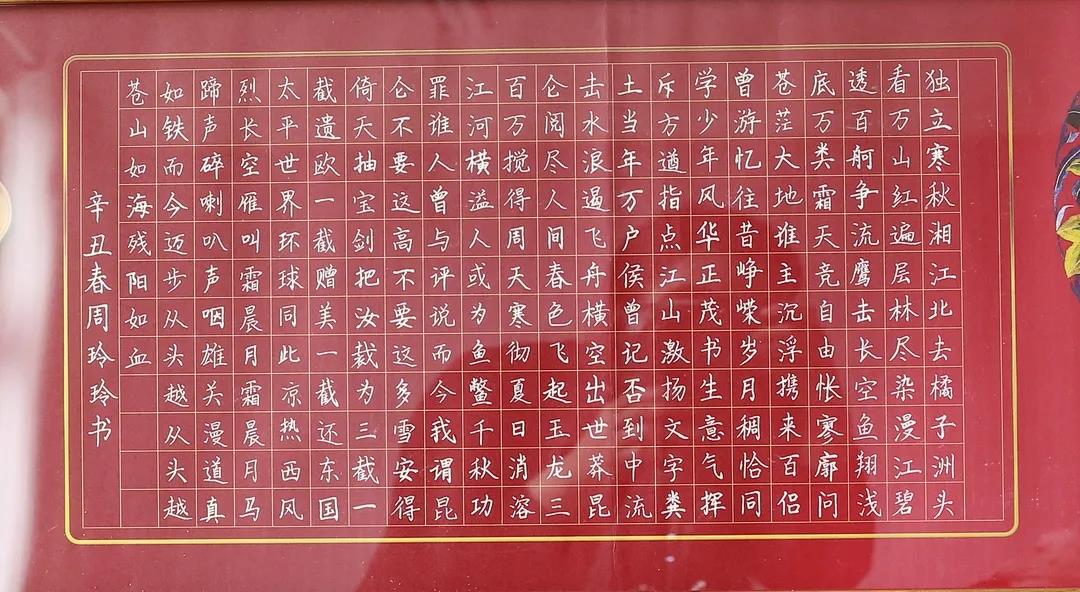 独立寒秋湘江北去橘子洲头
看万山红遍层林尽染漫江碧
透百舸争流鹰击长空鱼翔浅
底万类霜天竞自由怅寥廓问
苍茫大地谁主沉浮携来百侣
曾游忆往昔峥嵘岁月稠恰同
学少年风华正茂书生意气挥
斥方遒指点江山激扬文字粪
土当年万户侯曾记否到中流
击水浪遏飞舟横空出世莽昆
仑阅尽人间春色飞起玉龙三
百万搅得周天寒彻夏日消溶
江河横溢人或为鱼鳖千秋功
罪谁人曾与评说而今我谓昆
仑不要这高不要这多雪安得
倚天抽宝剑把汝裁为三截一
截遗欧一截赠美一截还东国
太平世界环球同此凉热西风
烈长空雁叫霜晨月霜晨月马
蹄声碎喇叭声咽雄关漫道真
如铁而今迈步从头越从头越
苍山如海残阳如血
辛丑春周玲玲书